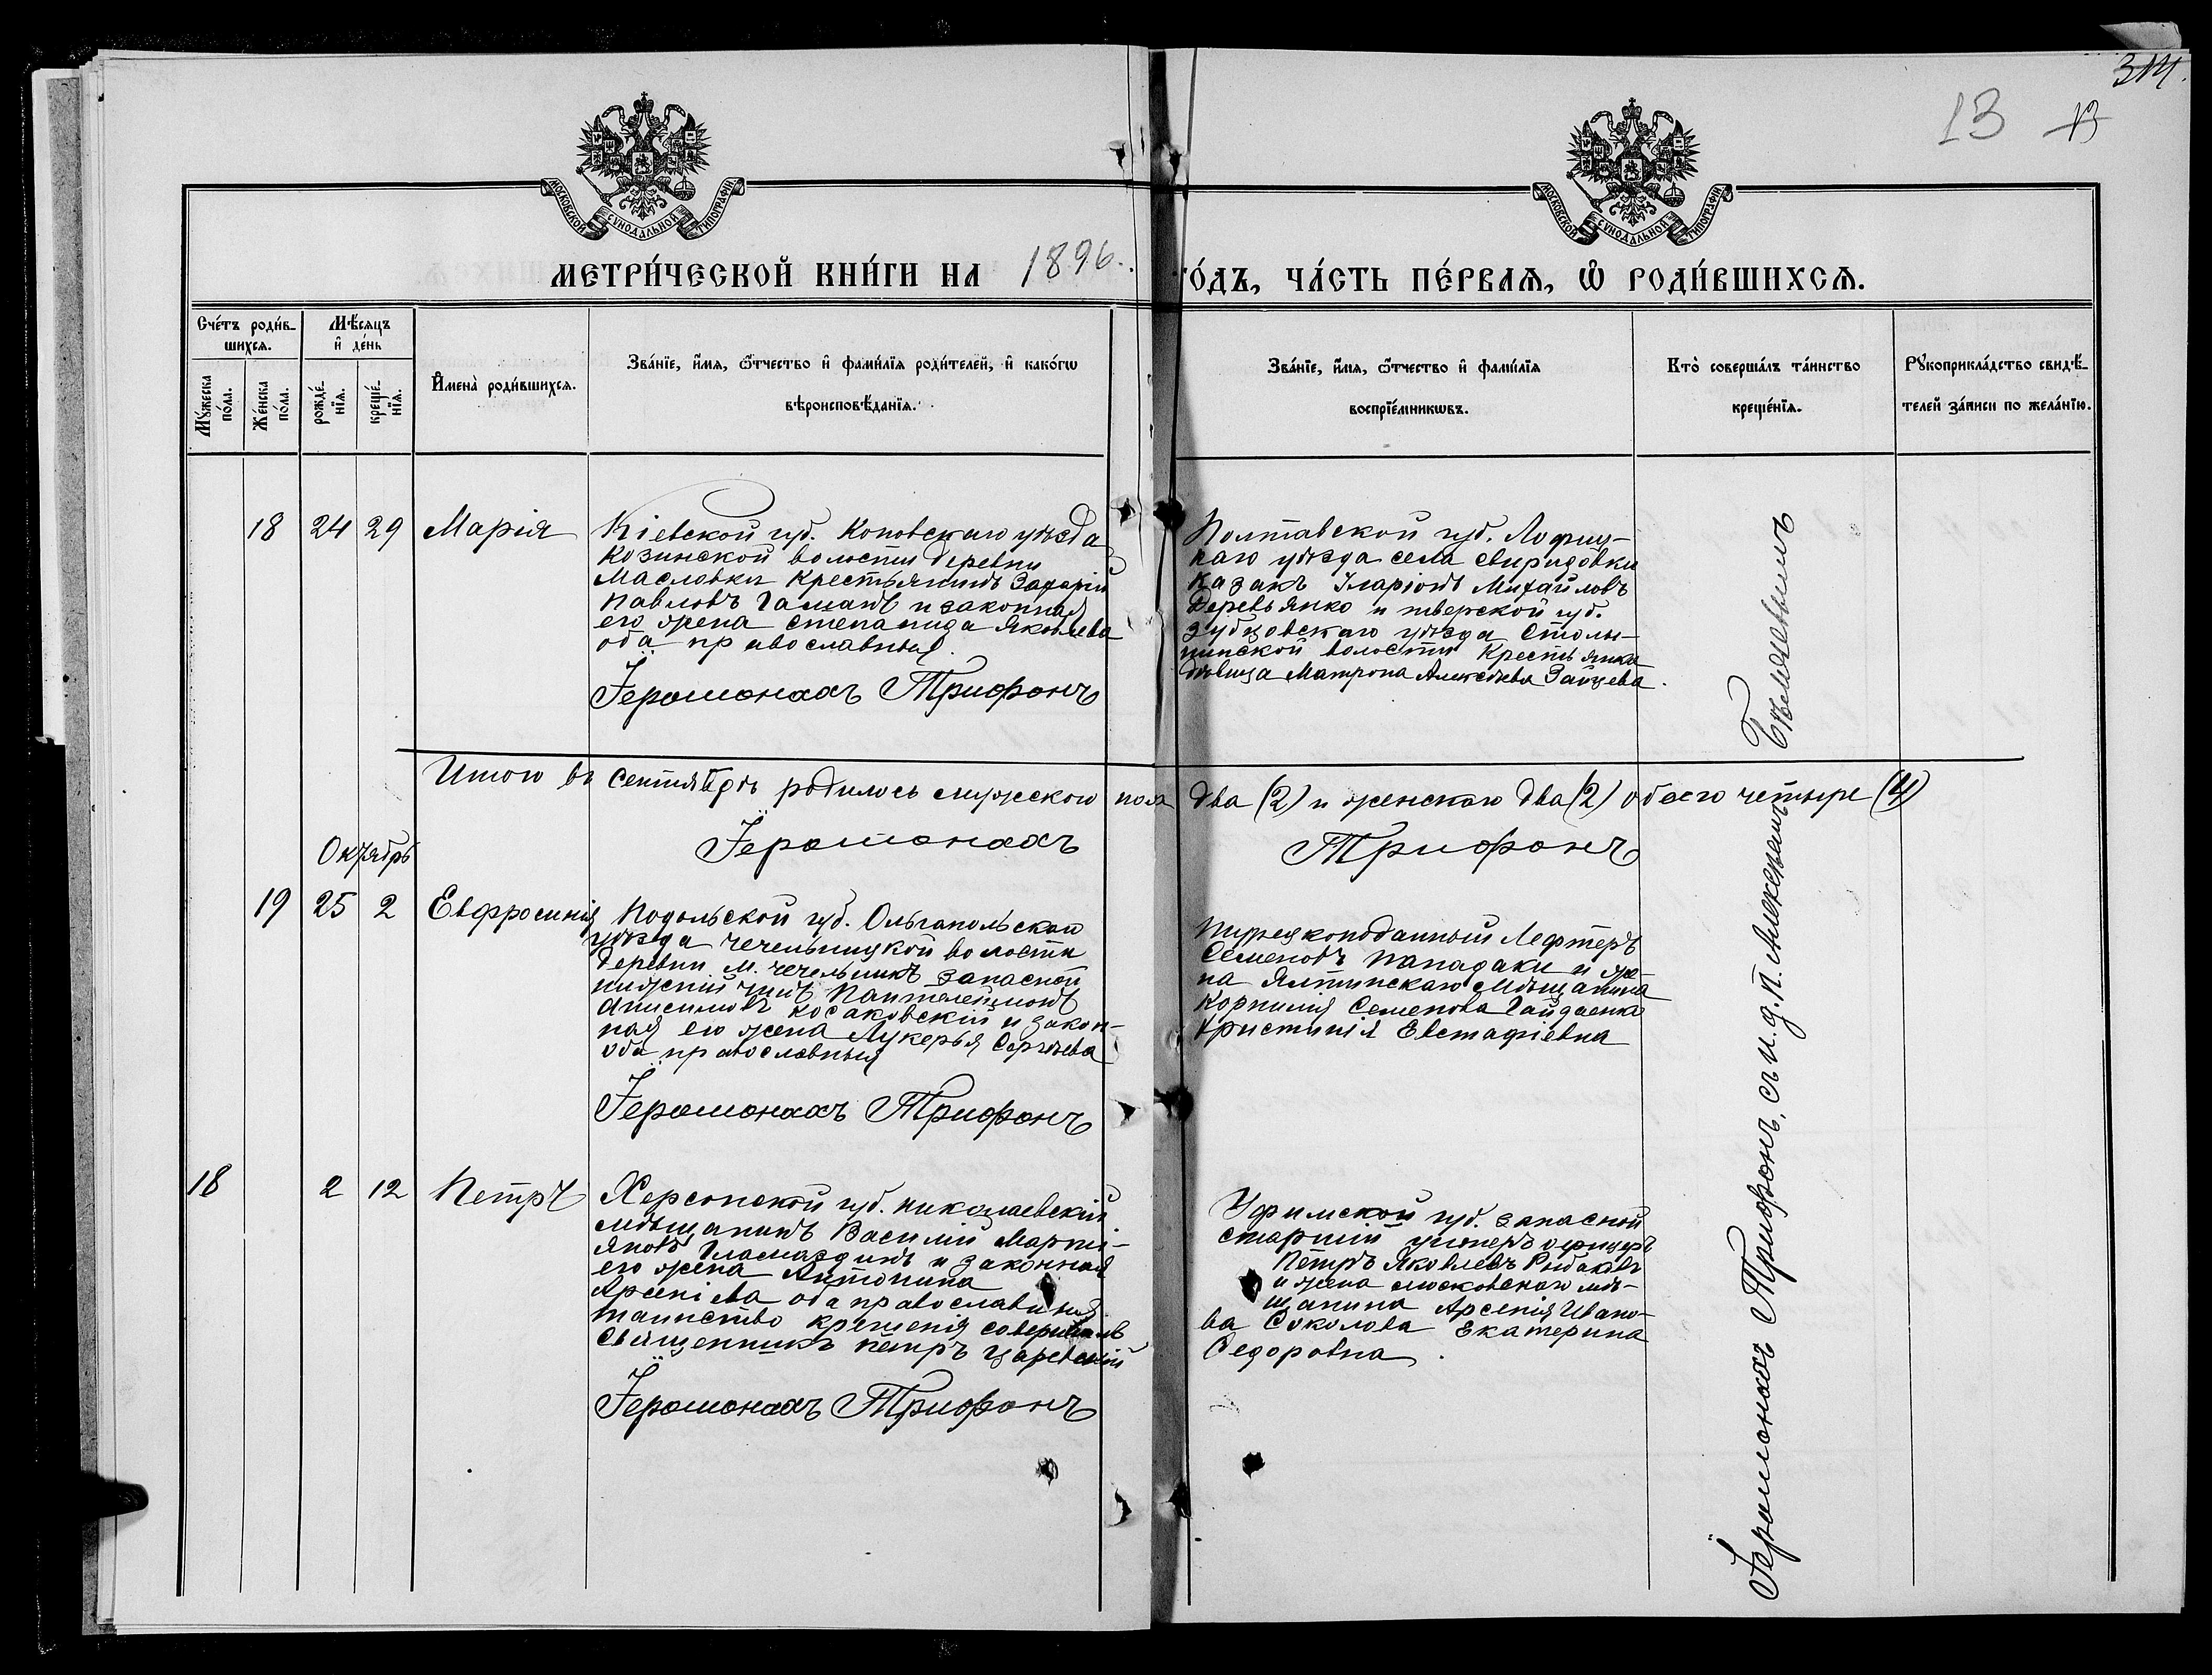 314.
13 13
МОСКОВСКОЙ СУНОДАЛЬНОЙ ТИПОГРАФІИ
МОСКОВСКОЙ СУНОДАЛЬНОЙ ТИПОГРАФІИ
МЕТРИ́ЧЕСКОЙ КНИ́ГИ НА 1896. ГО́ДЪ, ЧА́СТЬ ПЕ́РВАѦ, Ѽ РОДИ́ВШИХСѦ.
Сче́тъ роди́в-
шихсѧ.
Мꙋжеска по́ла.
Же́нска по́ла.
Мѣ́сяцъ
и҆ де́нь
рожде́-
нїѧ.
креще́-
нїѧ.
И҆мена̀ роди́вшихсѧ.
Зва́нїе, и҆́мѧ, ѻ҆́тчество и҆ фами́лїѧ роди́телей, и҆ како́гѡ
вѣроисповѣ́данїѧ.
Зва́нїе, и҆́мѧ, ѻ҆́тчество и҆ фами́лїѧ
воспрїе́мникѡвъ.
Кто̀ соверша́лъ та́инство
креще́нїѧ.
Рꙋкоприкла́дство свидѣ́-
телей за́писи по жела́нїю.
18 24 29 Марія
Кіевской губ. Коновскаго уѣзда
Козинской волости деревни
Масловки крестьянинъ Захарій
Павловъ Гаманъ и законная
его жена Степанида Яковлева
оба православныя.
Іеромонахъ Трифонъ
Полтавской губ. Лофиц-
каго уѣзда села Свиридовки
Казакъ Иларіонъ Михайловъ
Деревьянко и тверской губ.
Зубцовскаго уѣзда Столы-
пинской волости Крестьянка
дѣвица Матрона Алексѣева Зайцева.
Итого въ Сентябрѣ родилось мужского пола два (2) и женскаго два (2) обоего четыре (4)
Іеромонахъ Трифонъ
Октябрь
19 25 2 Евфросинія
Подольской губ. Ольгапольскаго
уѣзда Чечельницкой волости
деревни м. Чечельникъ запасной
нижній чинъ Пантелеимонъ
Анисимовъ Косаковскій и закон-
ная его жена Лукерья Сергѣева
оба православныя
Іеромонахъ Трифонъ
Турецкоподанный Лефтеръ
Семеновъ Пападаки и же-
на Ялтинскаго мѣщанина
Корнилія Семенова Гайдаенка
Христинія Евстафіевна
18 2 12 Петръ
Херсонской губ. николаевскій
мѣщанинъ Василій Марти-
яновъ Гламаздинъ и законная
его жена Антонина
Арсеніева оба православныя.
таинство крещенія совершалъ
Священникъ Петръ Царевскій
Іеромонахъ Трифонъ
Уфимской губ. запасной
старшій унтеръ офицеръ
Петръ Яковлевъ Рыбаковъ
и жена московскаго мѣ-
щанина Арсенія Ивано-
ва Соколова Екатерина
Федоровна.
Іеромонахъ Трифонъ, съ и. д. п. Алексѣемъ